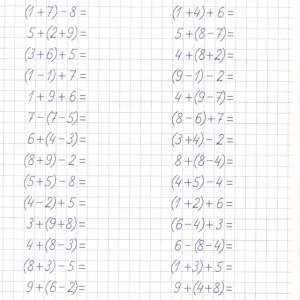 (1+7)-8=
5+(2+9)=
(3+6)+5=
(1-1)+7=
1+9+6=
7-(7-5)=
6+(4-3)=
(8+9)-2=
(5+5)-8=
(4-2)+5=
3+(9+8)=
4+(8-3)=
(8+3)-5=
9+(6-2)=
(1+4)+6=
5+(8-7)=
4+(8+2)=
(9-1)-2=
4+(9-7)=
(8-6)+7=
(3+4)-2=
8+(8-4)=
(4+5)-4=
(1+2)+6=
(6-4)+3=
6-(8-4)=
(1+3)+5=
9+(4+8)=